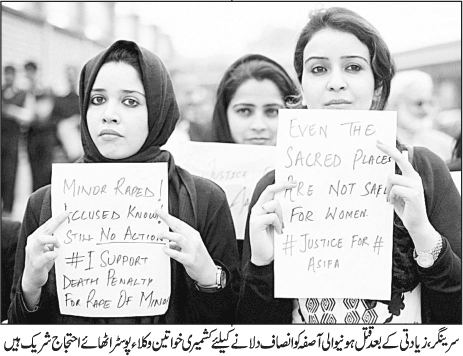 MINOR RAPED!
ACCUSED KNOWN
STILL NO ACTION
# I SUPPORT
DEATH PENALTY
FOR RAPE OF MINOR
JUSTICE
EVEN THE
SACRED PLACES
ARE NOT SAFE
FOR WOMEN.
# JUSTICE FOR #
ASIFA
سرینگر، زیادتی کے بعد قتل ہونیوالی آصفہ کو انصاف دلانے کیلئے کشمیری خواتین وکلاء پوسٹر اٹھائے احتجاج شریک ہیں